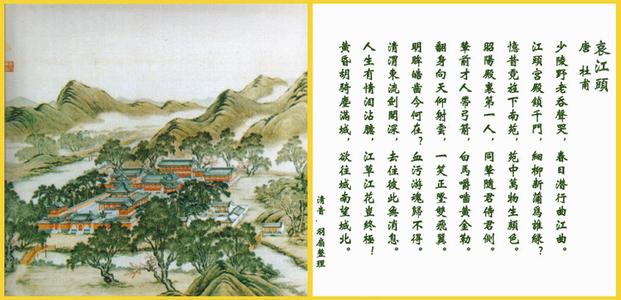 哀江頭
唐 杜甫
少陵野老吞聲哭，春日潛行曲江曲。
江頭宮殿鎖千門，細柳新蒲爲誰綠？
憶昔霓旌下南苑，苑中萬物生顏色。
昭陽殿裏第一人，同輦隨君侍君側。
輦前才人帶弓箭，白馬嚼嚙黃金勒。
翻身向天仰射雲，一笑正墜雙飛翼。
明眸皓齒今何在？血污游魂歸不得。
清渭東流劍閣深，去住彼此無消息。
人生有情泪沾臆，江草江花豈終極！
黃昏胡騎塵滿城，欲往城南望城北。
清音．羽扇整理